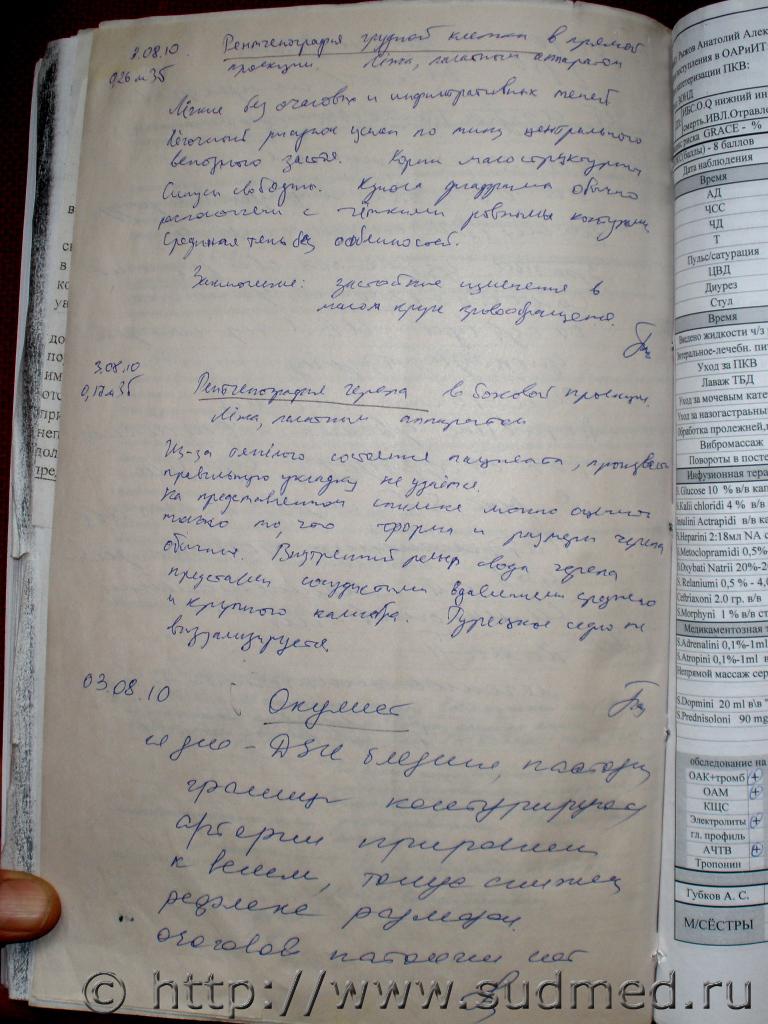 2.08.10 Рентгенография грудной клетки в прямой
0,26 мЗб проекции. Лёжа, палатным аппаратом
Лёгкие без очаговых и инфильтративных теней
Лёгочный рисунок усилен по типу центрального
венозного застоя. Корни малоструктурны
Синусы свободны. Купола диафрагмы обычно
расположены с чёткими ровными контурами
Срединная тень без особенностей.
Заключение: застойные изменения в
малом круге кровообращения.
3.08.10
0,17 мЗб Рентгенография черепа в боковой проекции.
Лёжа, палатным аппаратом
Из-за тяжёлого состояния пациента, произвести
правильную укладку не удаётся.
На представленном снимке можно оценить
только то, что форма и размеры черепа
обычные. Внутренний рельеф свода черепа
представлен сосудистыми вдавлениями среднего
и крупного калибра. Турецкое седло не
визуализируется.
03.08.10 Окулист
гл дно - ДЗН бледные,
границы контурируются
артерии
к венам, тонус снижен
рефлекс
очагов патологии нет
Рыжов Анатолий Алек
поступления в ОАРиИТ
катетеризации ПКВ:
ЗОНД
ИБС.О.Q нижний ин
смерть.ИВЛ.Отравле
риска GRACE - %
(баллы) - 8 баллов
Дата наблюдения
Время
АД
ЧСС
ЧД
Т
Пульс/сатурация
ЦВД
Диурез
Стул
Время
Введено жидкости ч/з
Энтеральное-лечебн. пи
Уход за ПКВ
Лаваж ТБД
Уход за мочевым кате
Уход за назогастральны
Обработка пролежней,
Вибромассаж
Повороты в посте
Инфузионная тера
S.Glucose 10 % в/в кап
S.Kalii chloridi 4 % в/в
Insulini Actrapidi в/в ка
S.Heparini 2:18мл NA c
S.Metoclopramidi 0,5%
S.Oxybati Natrii 20%-2
S. Relaniumi 0,5 % - 4,
Ceftriaxoni 2.0 гр. в/в
S.Morphyni 1 % в/в ст
Медикаментозная т
S.Adrenalini 0,1%-1ml
S.Atropini 0,1%-1ml в
Непрямой массаж сер
S.Dopmini 20 ml в\в "
S.Prednisoloni 90 mg
обследование на
ОАК+тромб +
ОАМ +
КЩС
Электролиты +
гл. профиль
АЧТВ +
Тропонин
Губков А. С.
М/СЁСТРЫ
© http://www.sudmed.ru